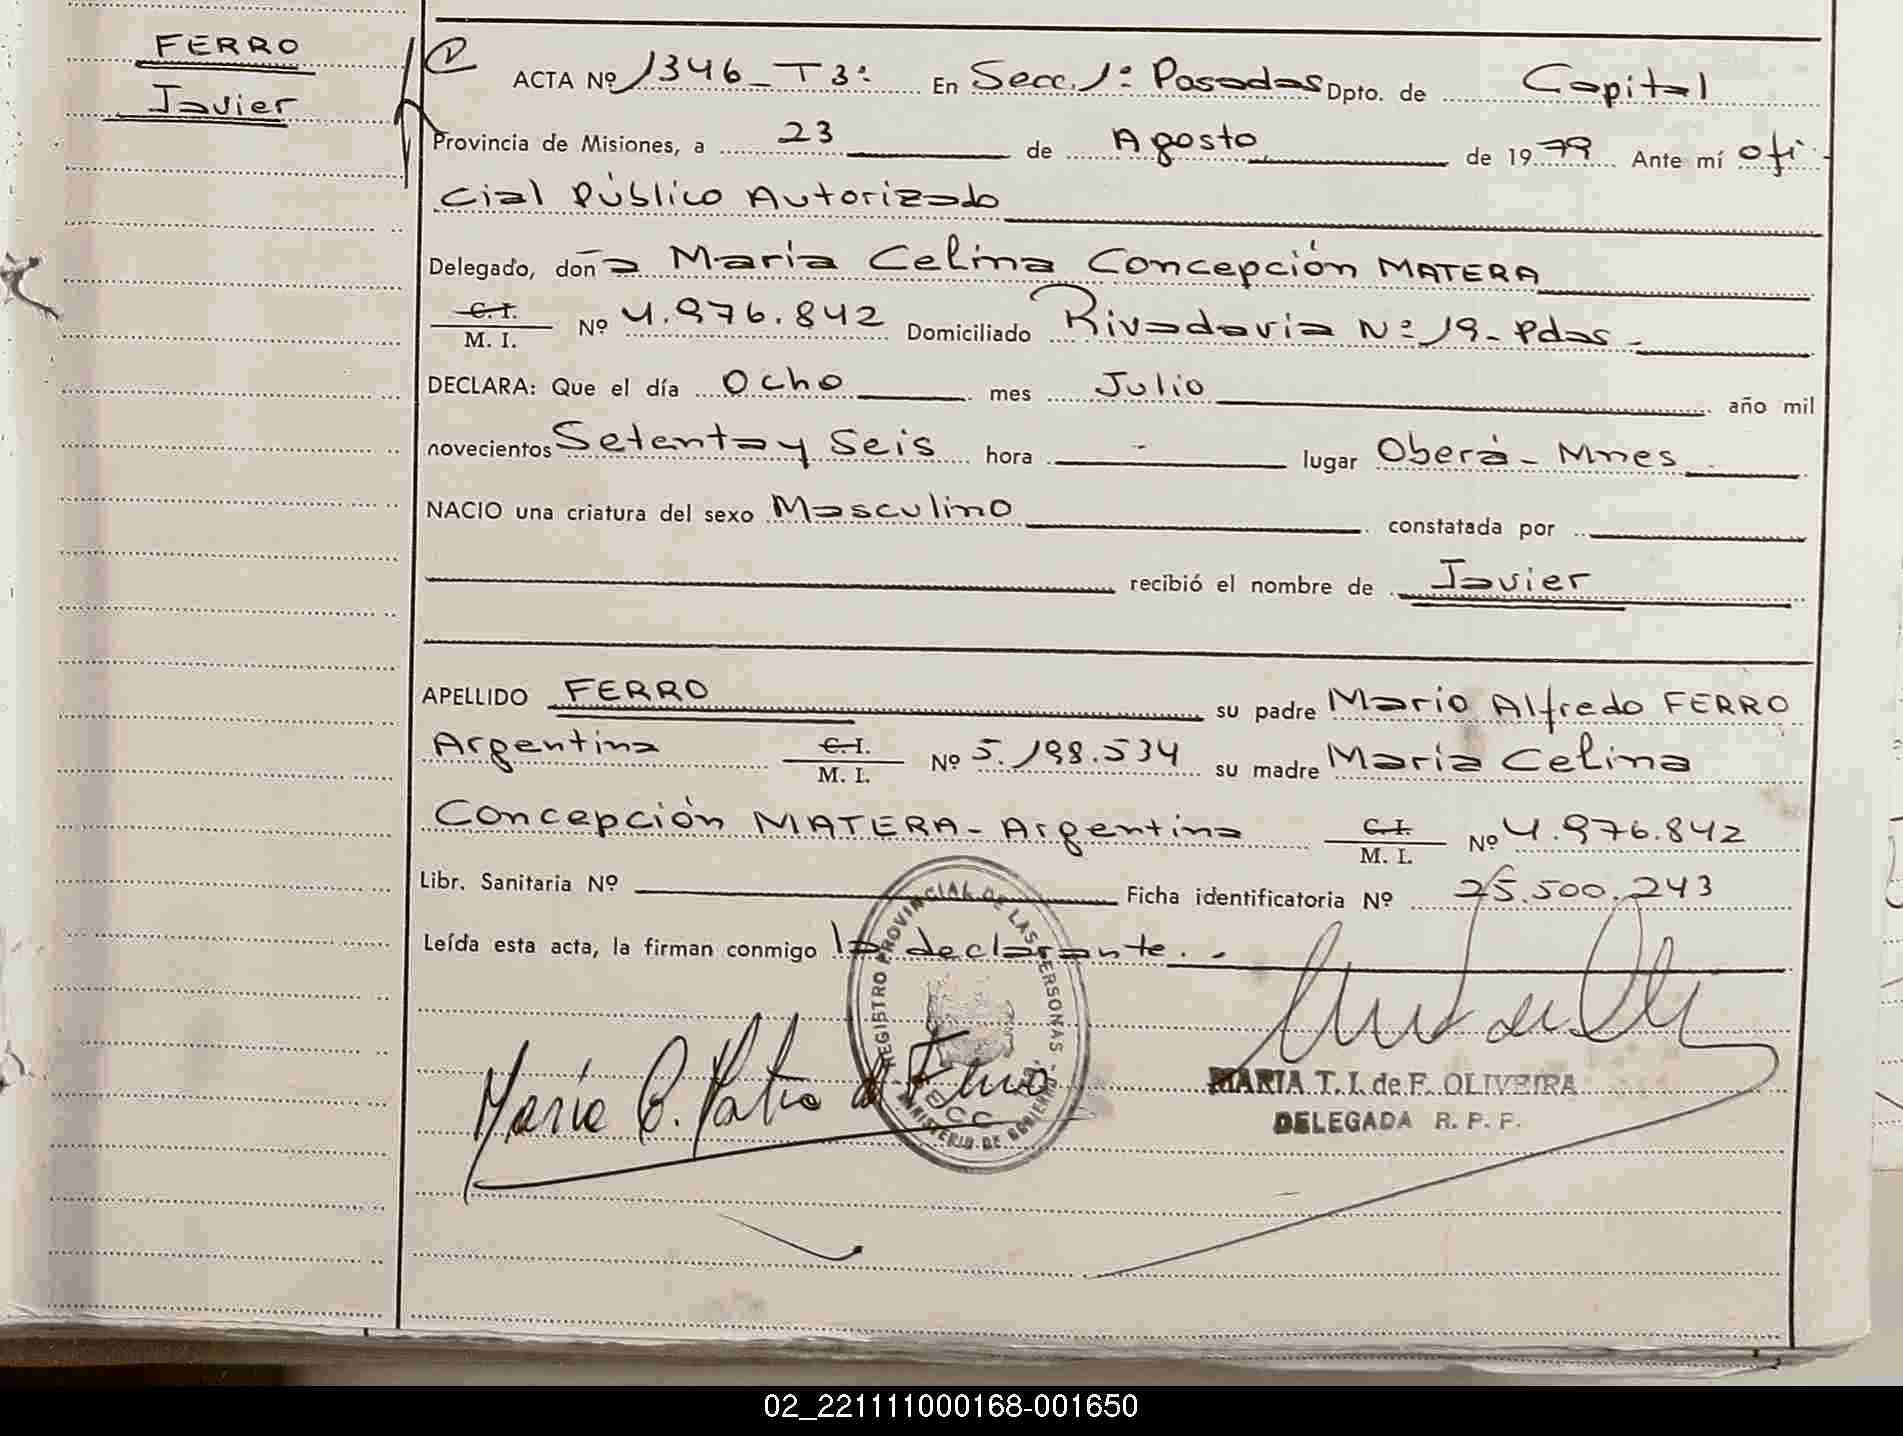 FERRO
Javier
ACTA Nº 1346_T 3º En Secc. 1º Posadas Dpto. de Capital
Provincia de Misiones, a 23 de Agosto de 1979 Ante mí ofi-
cial Público Autorizado
Delegado, doña María Celina Concepción MATERA
C.I.
M. I. Nº 4.976.842 Domiciliado Rivadavia Nº 19_ Pdas_
DECLARA: Que el día Ocho mes Julio año mil
novecientos Setenta y Seis hora - lugar Oberá- Mnes
NACIO una criatura del sexo Masculino constatada por
recibió el nombre de Javier
APELLIDO FERRO su padre Mario Alfredo FERRO
Argentina C.I. M. I. Nº 5.198.534 su madre María Celina
Concepción MATERA- Argentina C.I. M. I. Nº 4.976.842
Libr. Sanitaria Nº Ficha identificatoria Nº 25.500.243
Leída esta acta, la firman conmigo la declarante. -
REGISTRO PROVINCIAL DE LAS PERSONAS - MINISTERIO DE GOBIERNO
MARIA T. I. de F. OLIVEIRA
DELEGADA R. P. P.
02_221111000168-001650